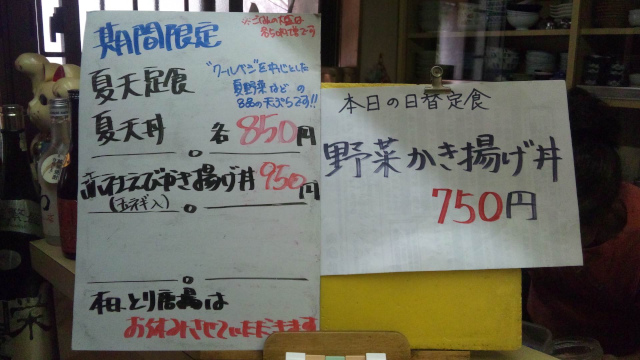 期間限定
※ごはん大盛は
各50円増です
夏天定食
"クールベジ"をメインとした
夏野菜などの
8品の天ぷらです!!
夏天丼 各850円
えびかき揚げ丼 950円
(玉ネギ入)
本日、とり唐揚は
お休みさせていただきます
本日の日替定食
野菜かき揚げ丼
750円